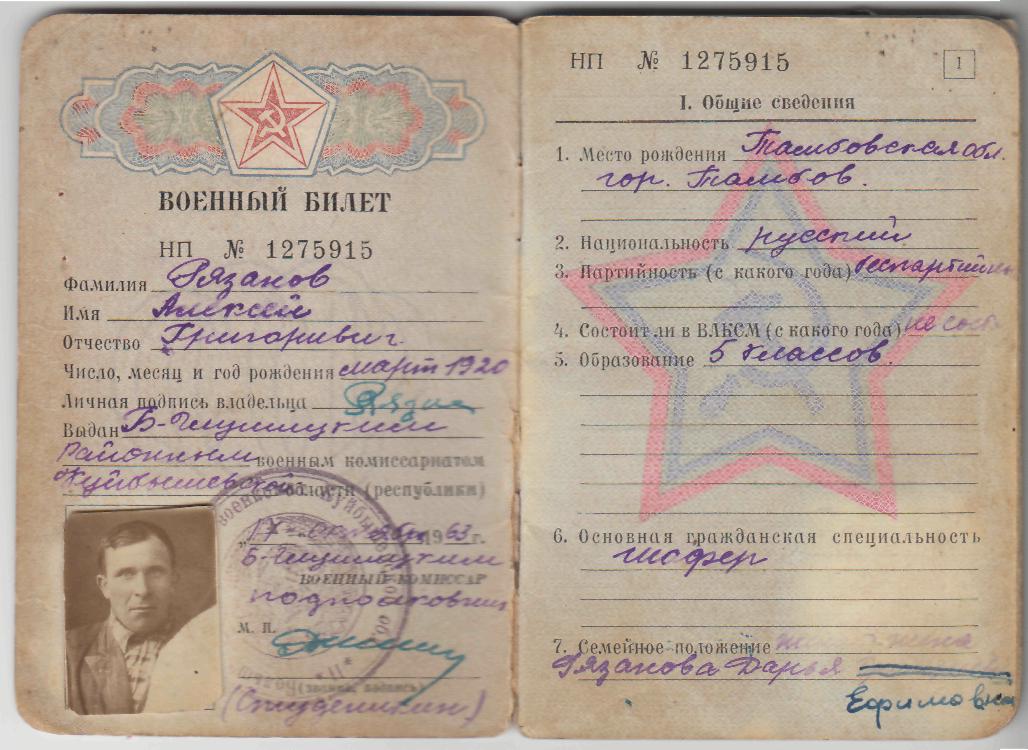 ВОЕННЫЙ БИЛЕТ
НП № 1275915
Фамилия Рязанов
Имя Алексей
Отчество Григоривич
Число, месяц и год рождения март 1920
Личная подпись владельца
Выдан Б-Глушицким
районным военным комиссариатом
Куйбышевской области (республики)
"17" октября 1963 г.
Б-Глушицким
ВОЕННЫЙ КОМИССАР
подполковник
М. П.
(Студеникин)
НП № 1275915
1
I. Общие сведения
1. Место рождения Тамбовская обл.
гор. Тамбов.
2. Национальность русский
3. Партийность (с какого года) беспартийный
4. Состоит ли в ВЛКСМ (с какого года) не сост.
5. Образование 5 классов.
6. Основная гражданская специальность
шофер
7. Семейное положение жена
Рязанова Дарья
Ефимовна